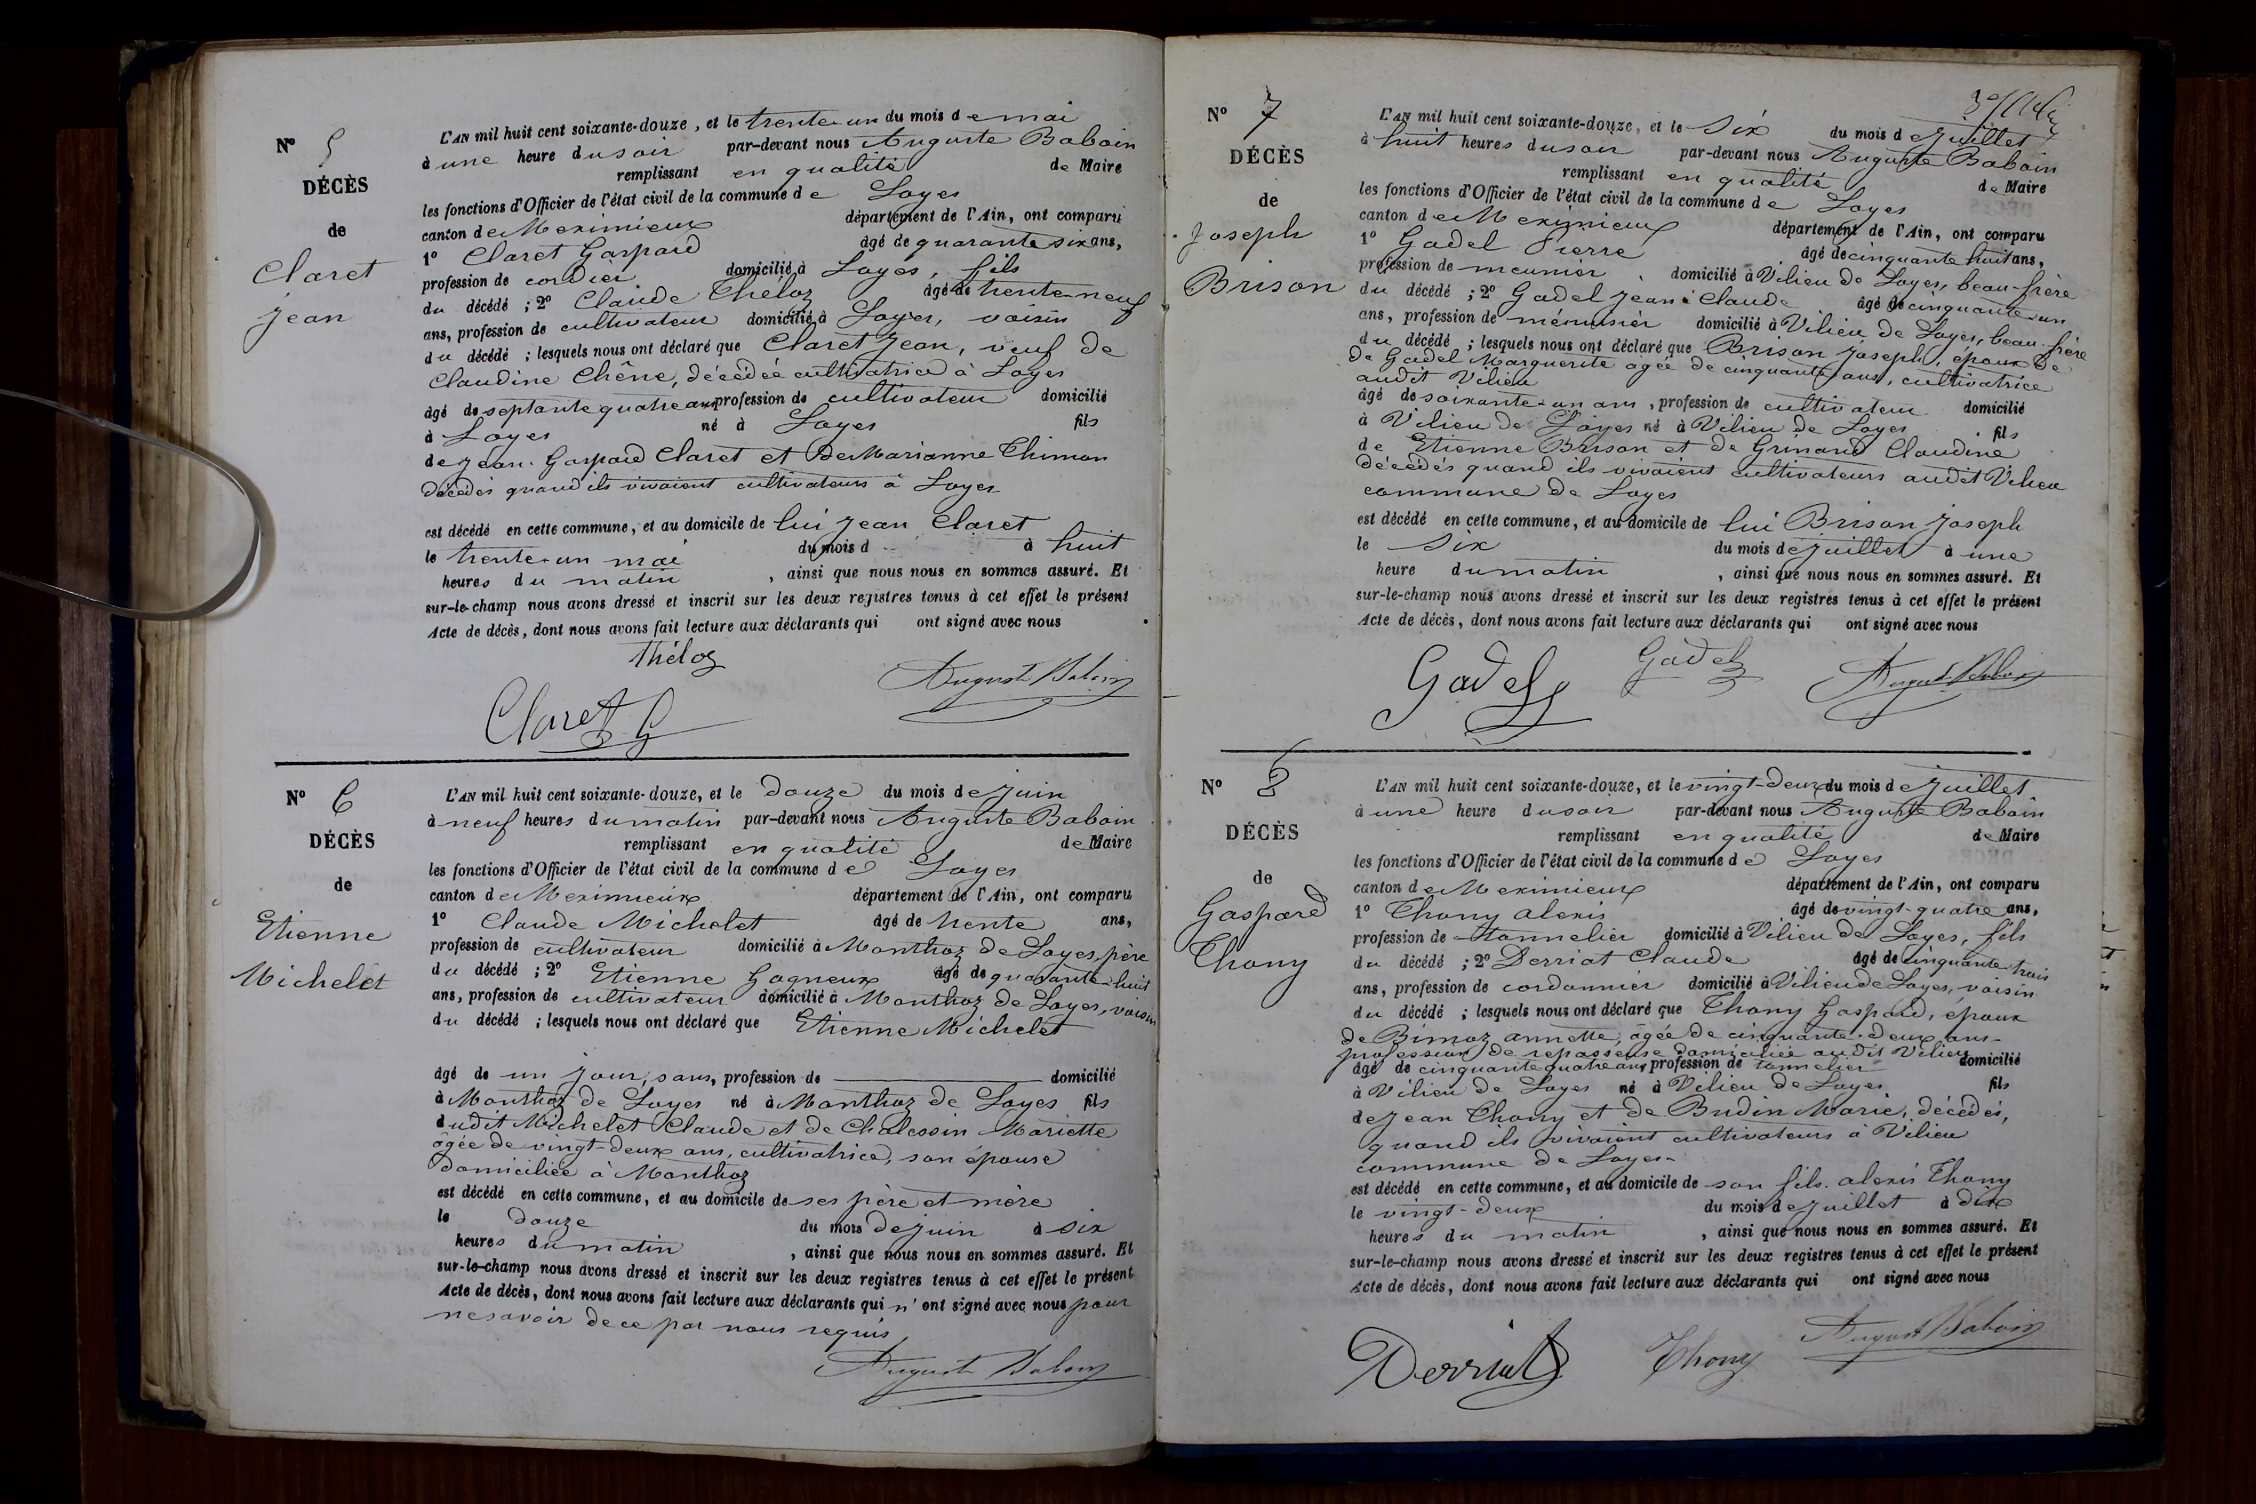 Nº 5
DÉCÈS
de
Claret
Jean
L'AN mil huit cent soixante-douze, et le trente-un du mois de mai
à une heure du soir par-devant nous Auguste Baboin
remplissant en qualité de Maire
les fonctions d'Officier de l'état civil de la commune de Loyes
canton de Meximieux département de l'Ain, ont comparu
1º Claret Gaspard âgé de quarante six ans,
profession de cordier domicilié à Loyes, fils
du décédé ; 2º Claude Théloz âgé de trente-neuf
ans, profession de cultivateur domicilié à Loyes, voisin
du décédé ; lesquels nous ont déclaré que Claret Jean, veuf de
Claudine Chêne, décédée cultivatrice à Loyes
âgé de septante quatre ans profession de cultivateur domicilié
à Loyes né à Loyes fils
de Jean-Gaspard Claret et de Marianne Thimon
décédés quand ils vivaient cultivateurs à Loyes
est décédé en cette commune, et au domicile de lui Jean Claret
le trente-un mai du mois d à huit
heures du matin , ainsi que nous nous en sommes assuré. Et
sur-le-champ nous avons dressé et inscrit sur les deux registres tenus à cet effet le présent
Acte de décès, dont nous avons fait lecture aux déclarants qui ont signé avec nous
Théloz
August Baboin
Claret G
Nº 6
DÉCÈS
de
Etienne
Michelet
L'AN mil huit cent soixante-douze, et le douze du mois de juin
à neuf heures du matin par-devant nous Auguste Baboin
remplissant en qualité de Maire
les fonctions d'Officier de l'état civil de la commune de Loyes
canton de Meximieux département de l'Ain, ont comparu
1º Claude Michelet âgé de trente ans,
profession de cultivateur domicilié à Monthoz de Loyes, père
du décédé ; 2º Etienne Gagneux âgé de quarante-huit
ans, profession de cultivateur domicilié à Monthoz de Loyes, voisin
du décédé ; lesquels nous ont déclaré que Etienne Michelet
âgé de un jour, sans, profession de domicilié
à Monthoz de Loyes né à Monthoz de Loyes fils
dudit Michelet Claude et de Chalessin Mariette
âgée de vingt-deux ans, cultivatrice, son épouse
domiciliée à Monthoz
est décédé en cette commune, et au domicile de ses père et mère
le douze du mois de juin à six
heures du matin , ainsi que nous nous en sommes assuré. Et
sur-le-champ nous avons dressé et inscrit sur les deux registres tenus à cet effet le présent
Acte de décès, dont nous avons fait lecture aux déclarants qui n'ont signé avec nous pour
ne savoir de ce par nous requis
August Baboin
Nº 7
DÉCÈS
de
Joseph
Brison
L'AN mil huit cent soixante-douze, et le six du mois de juillet
à huit heures du soir par-devant nous Auguste Baboin
remplissant en qualité de Maire
les fonctions d'Officier de l'état civil de la commune de Loyes
canton de Meximieux département de l'Ain, ont comparu
1º Gadel Pierre âgé de cinquante huit ans,
profession de meunier, domicilié à Vilieu de Loyes, beau-frère
du décédé ; 2º Gadel Jean-Claude âgé de cinquante-un
ans, profession de ménusier domicilié à Vilieu de Loyes, beau-frère
du décédé ; lesquels nous ont déclaré que Brison Joseph, époux de
de Gadel Marguerite agée de cinquante ans, cultivatrice
audit Vilieu
âgé de soixante-un ans, profession de cultivateur domicilié
à Vilieu de Loyes né à Vilieu de Loyes fils
de Etienne Brison et de Grinand Claudine
décédés quand ils vivaient cultivateurs audit Vilieu
commune de Loyes
est décédé en cette commune, et au domicile de lui Brison Joseph
le six du mois de juillet à une
heure du matin , ainsi que nous nous en sommes assuré. Et
sur-le-champ nous avons dressé et inscrit sur les deux registres tenus à cet effet le présent
Acte de décès, dont nous avons fait lecture aux déclarants qui ont signé avec nous
Gadel
Gadel
August Baboin
Nº 8
DÉCÈS
de
Gaspard
Thony
L'AN mil huit cent soixante-douze, et le vingt-deux du mois de juillet
à une heure du soir par-devant nous Auguste Baboin
remplissant en qualité de Maire
les fonctions d'Officier de l'état civil de la commune de Loyes
canton de Meximieux département de l'Ain, ont comparu
1º Thony alexis âgé de vingt-quatre ans,
profession de tonnelier domicilié à Vilieu de Loyes, fils
du décédé ; 2º Derriat Claude âgé de cinquante-trois
ans, profession de cordonnier domicilié à Vilieu de Loyes, voisin
du décédé ; lesquels nous ont déclaré que Thony Gaspard, époux
de Bimoz annette, âgée de cinquante-deux ans
profession de repasseuse domiciliée audit Vilieu
âgé de cinquante quatre ans profession de tonnelier domicilié
à Vilieu de Loyes né à Vilieu de Loyes fils
de Jean Thony et de Budin Marie, décédés,
quand ils vivaient cultivateurs à Vilieu
commune de Loyes
est décédé en cette commune, et au domicile de son fils alexis Thony
le vingt-deux du mois de juillet à dix
heures du matin , ainsi que nous nous en sommes assuré. Et
sur-le-champ nous avons dressé et inscrit sur les deux registres tenus à cet effet le présent
Acte de décès, dont nous avons fait lecture aux déclarants qui ont signé avec nous
August Baboin
Derriat
Thony